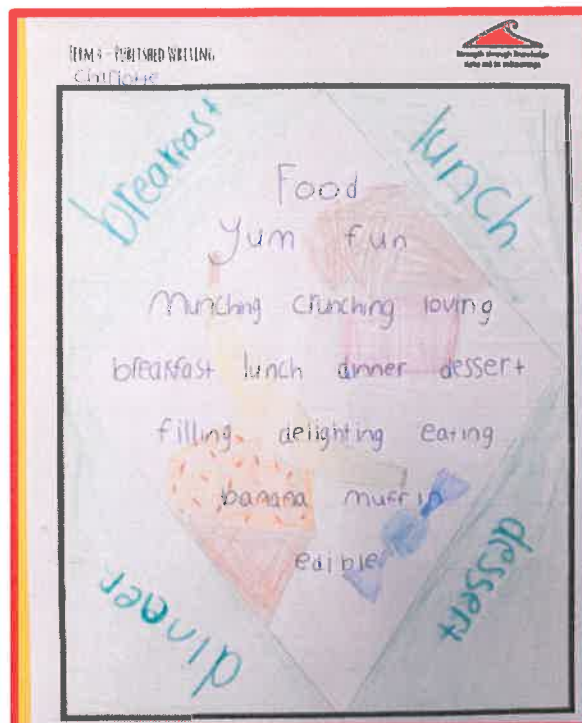 TERM 4 - PUBLISHED WRITING
Strength through knowledge
breakfast
lunch
Food
Yum fun
Munching crunching loving
breakfast lunch dinner dessert
filling delighting eating
banana muffin
edible
dinner
dessert